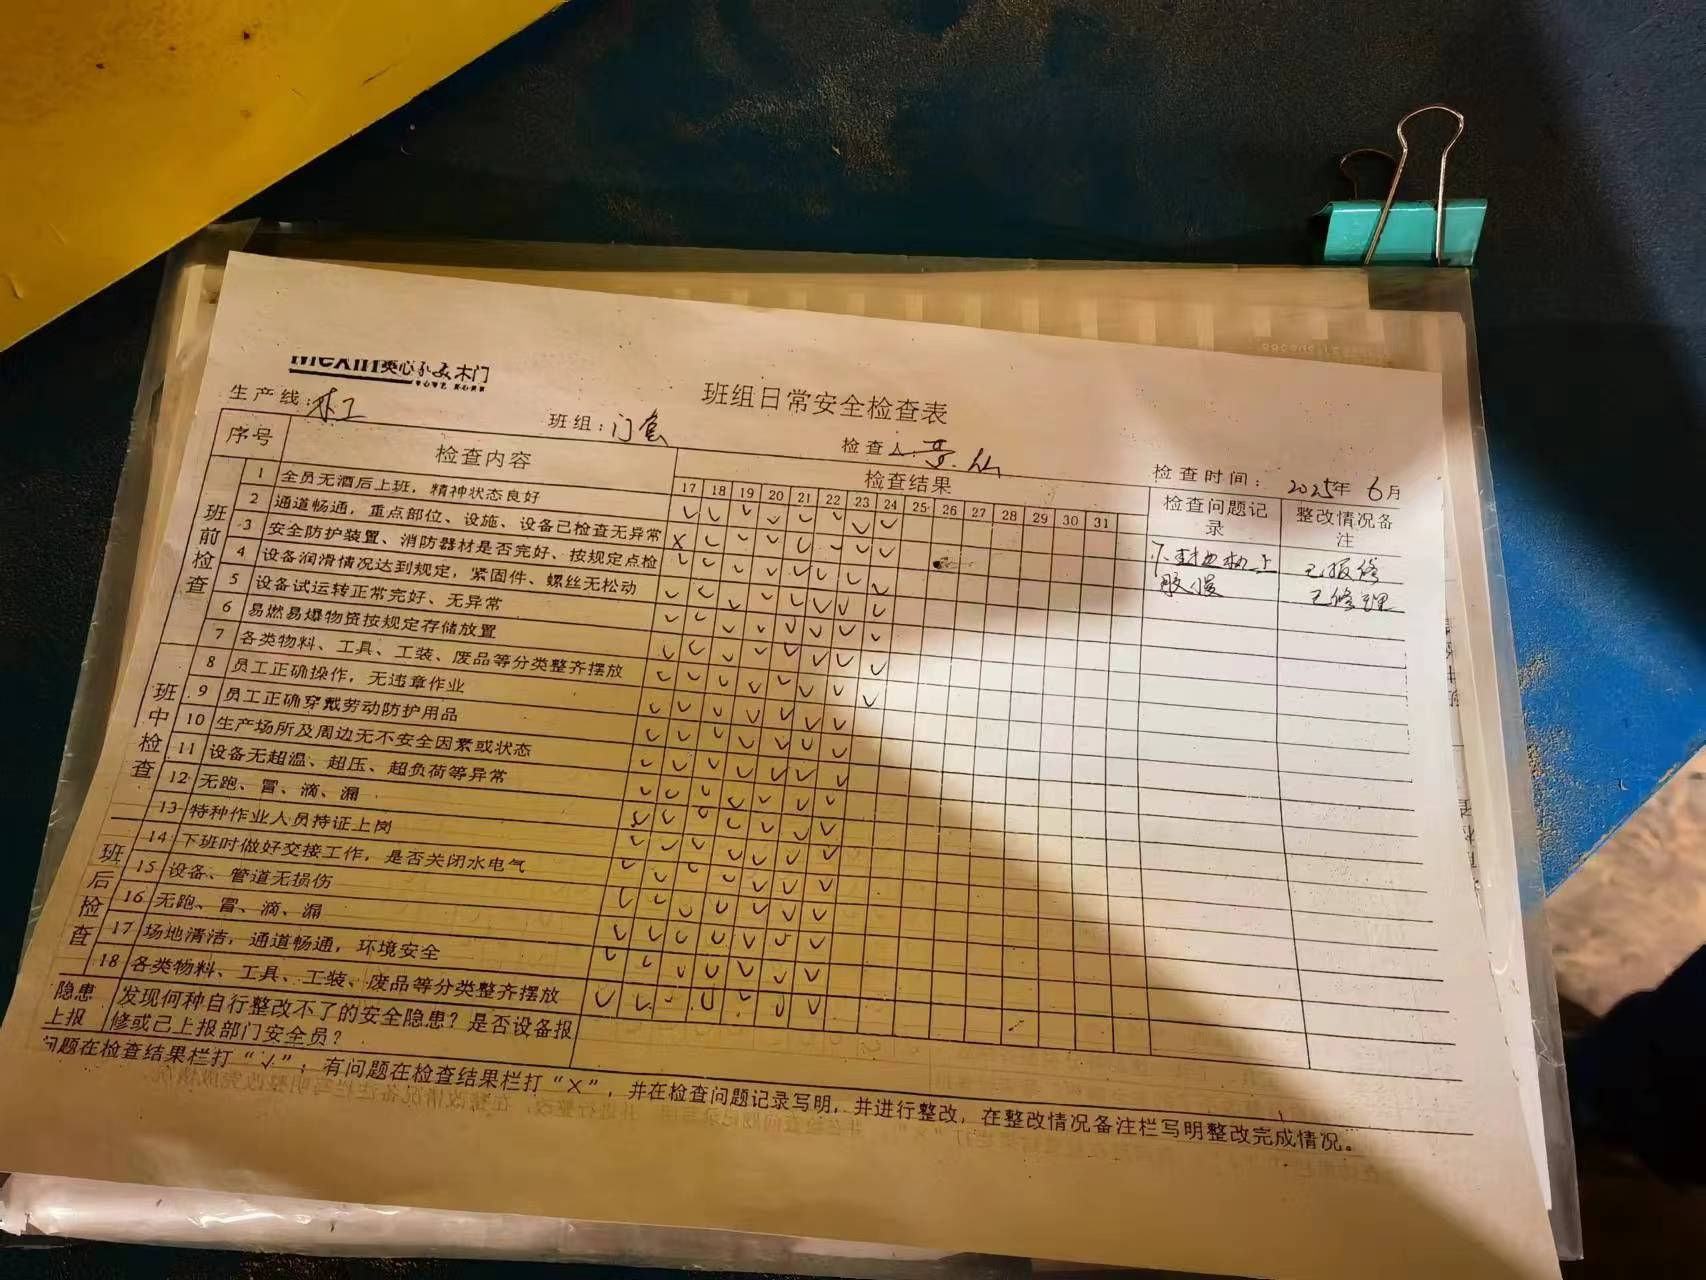 Mexin美心 木门
班组日常安全检查表
生产线：木工 班组：门套 检查人： 检查时间：2025年6月
序号 检查内容 检查结果 检查问题记录 整改情况备注
17 18 19 20 21 22 23 24 25 26 27 28 29 30 31
班前检查
1 全员无酒后上班，精神状态良好 ✓ ✓ ✓ ✓ ✓ ✓ ✓ ✓
2 通道畅通，重点部位、设施、设备已检查无异常 X ✓ ✓ ✓ ✓ ✓ ✓ ✓ 上 已报修
3 安全防护装置、消防器材是否完好、按规定点检 ✓ ✓ ✓ ✓ ✓ ✓ ✓ ✓ 胶慢 已修理
4 设备润滑情况达到规定，紧固件、螺丝无松动 ✓ ✓ ✓ ✓ ✓ ✓ ✓ ✓
5 设备试运转正常完好、无异常 ✓ ✓ ✓ ✓ ✓ ✓ ✓ ✓
6 易燃易爆物资按规定存储放置 ✓ ✓ ✓ ✓ ✓ ✓ ✓ ✓
7 各类物料、工具、工装、废品等分类整齐摆放 ✓ ✓ ✓ ✓ ✓ ✓ ✓ ✓
班中检查
8 员工正确操作，无违章作业 ✓ ✓ ✓ ✓ ✓ ✓
9 员工正确穿戴劳动防护用品 ✓ ✓ ✓ ✓ ✓ ✓
10 生产场所及周边无不安全因素或状态 ✓ ✓ ✓ ✓ ✓ ✓
11 设备无超温、超压、超负荷等异常 ✓ ✓ ✓ ✓ ✓ ✓
12 无跑、冒、滴、漏 ✓ ✓ ✓ ✓ ✓ ✓
13 特种作业人员持证上岗 ✓ ✓ ✓ ✓ ✓ ✓
班后检查
14 下班时做好交接工作，是否关闭水电气 ✓ ✓ ✓ ✓ ✓ ✓
15 设备、管道无损伤 ✓ ✓ ✓ ✓ ✓ ✓
16 无跑、冒、滴、漏 ✓ ✓ ✓ ✓ ✓ ✓
17 场地清洁，通道畅通，环境安全 ✓ ✓ ✓ ✓ ✓ ✓
18 各类物料、工具、工装、废品等分类整齐摆放 ✓ ✓ ✓ ✓ ✓ ✓
隐患上报 发现何种自行整改不了的安全隐患？是否设备报
修或已上报部门安全员？
问题在检查结果栏打“√”；有问题在检查结果栏打“X”，并在检查问题记录写明，并进行整改，在整改情况备注栏写明整改完成情况。